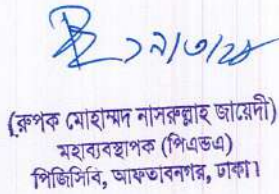 ১৭/৩/২৪
(রুপক মোহাম্মদ নাসরুল্লাহ জায়েদী)
মহাব্যবস্থাপক (পিএন্ডএ)
পিজিসিবি, আফতাবনগর, ঢাকা।